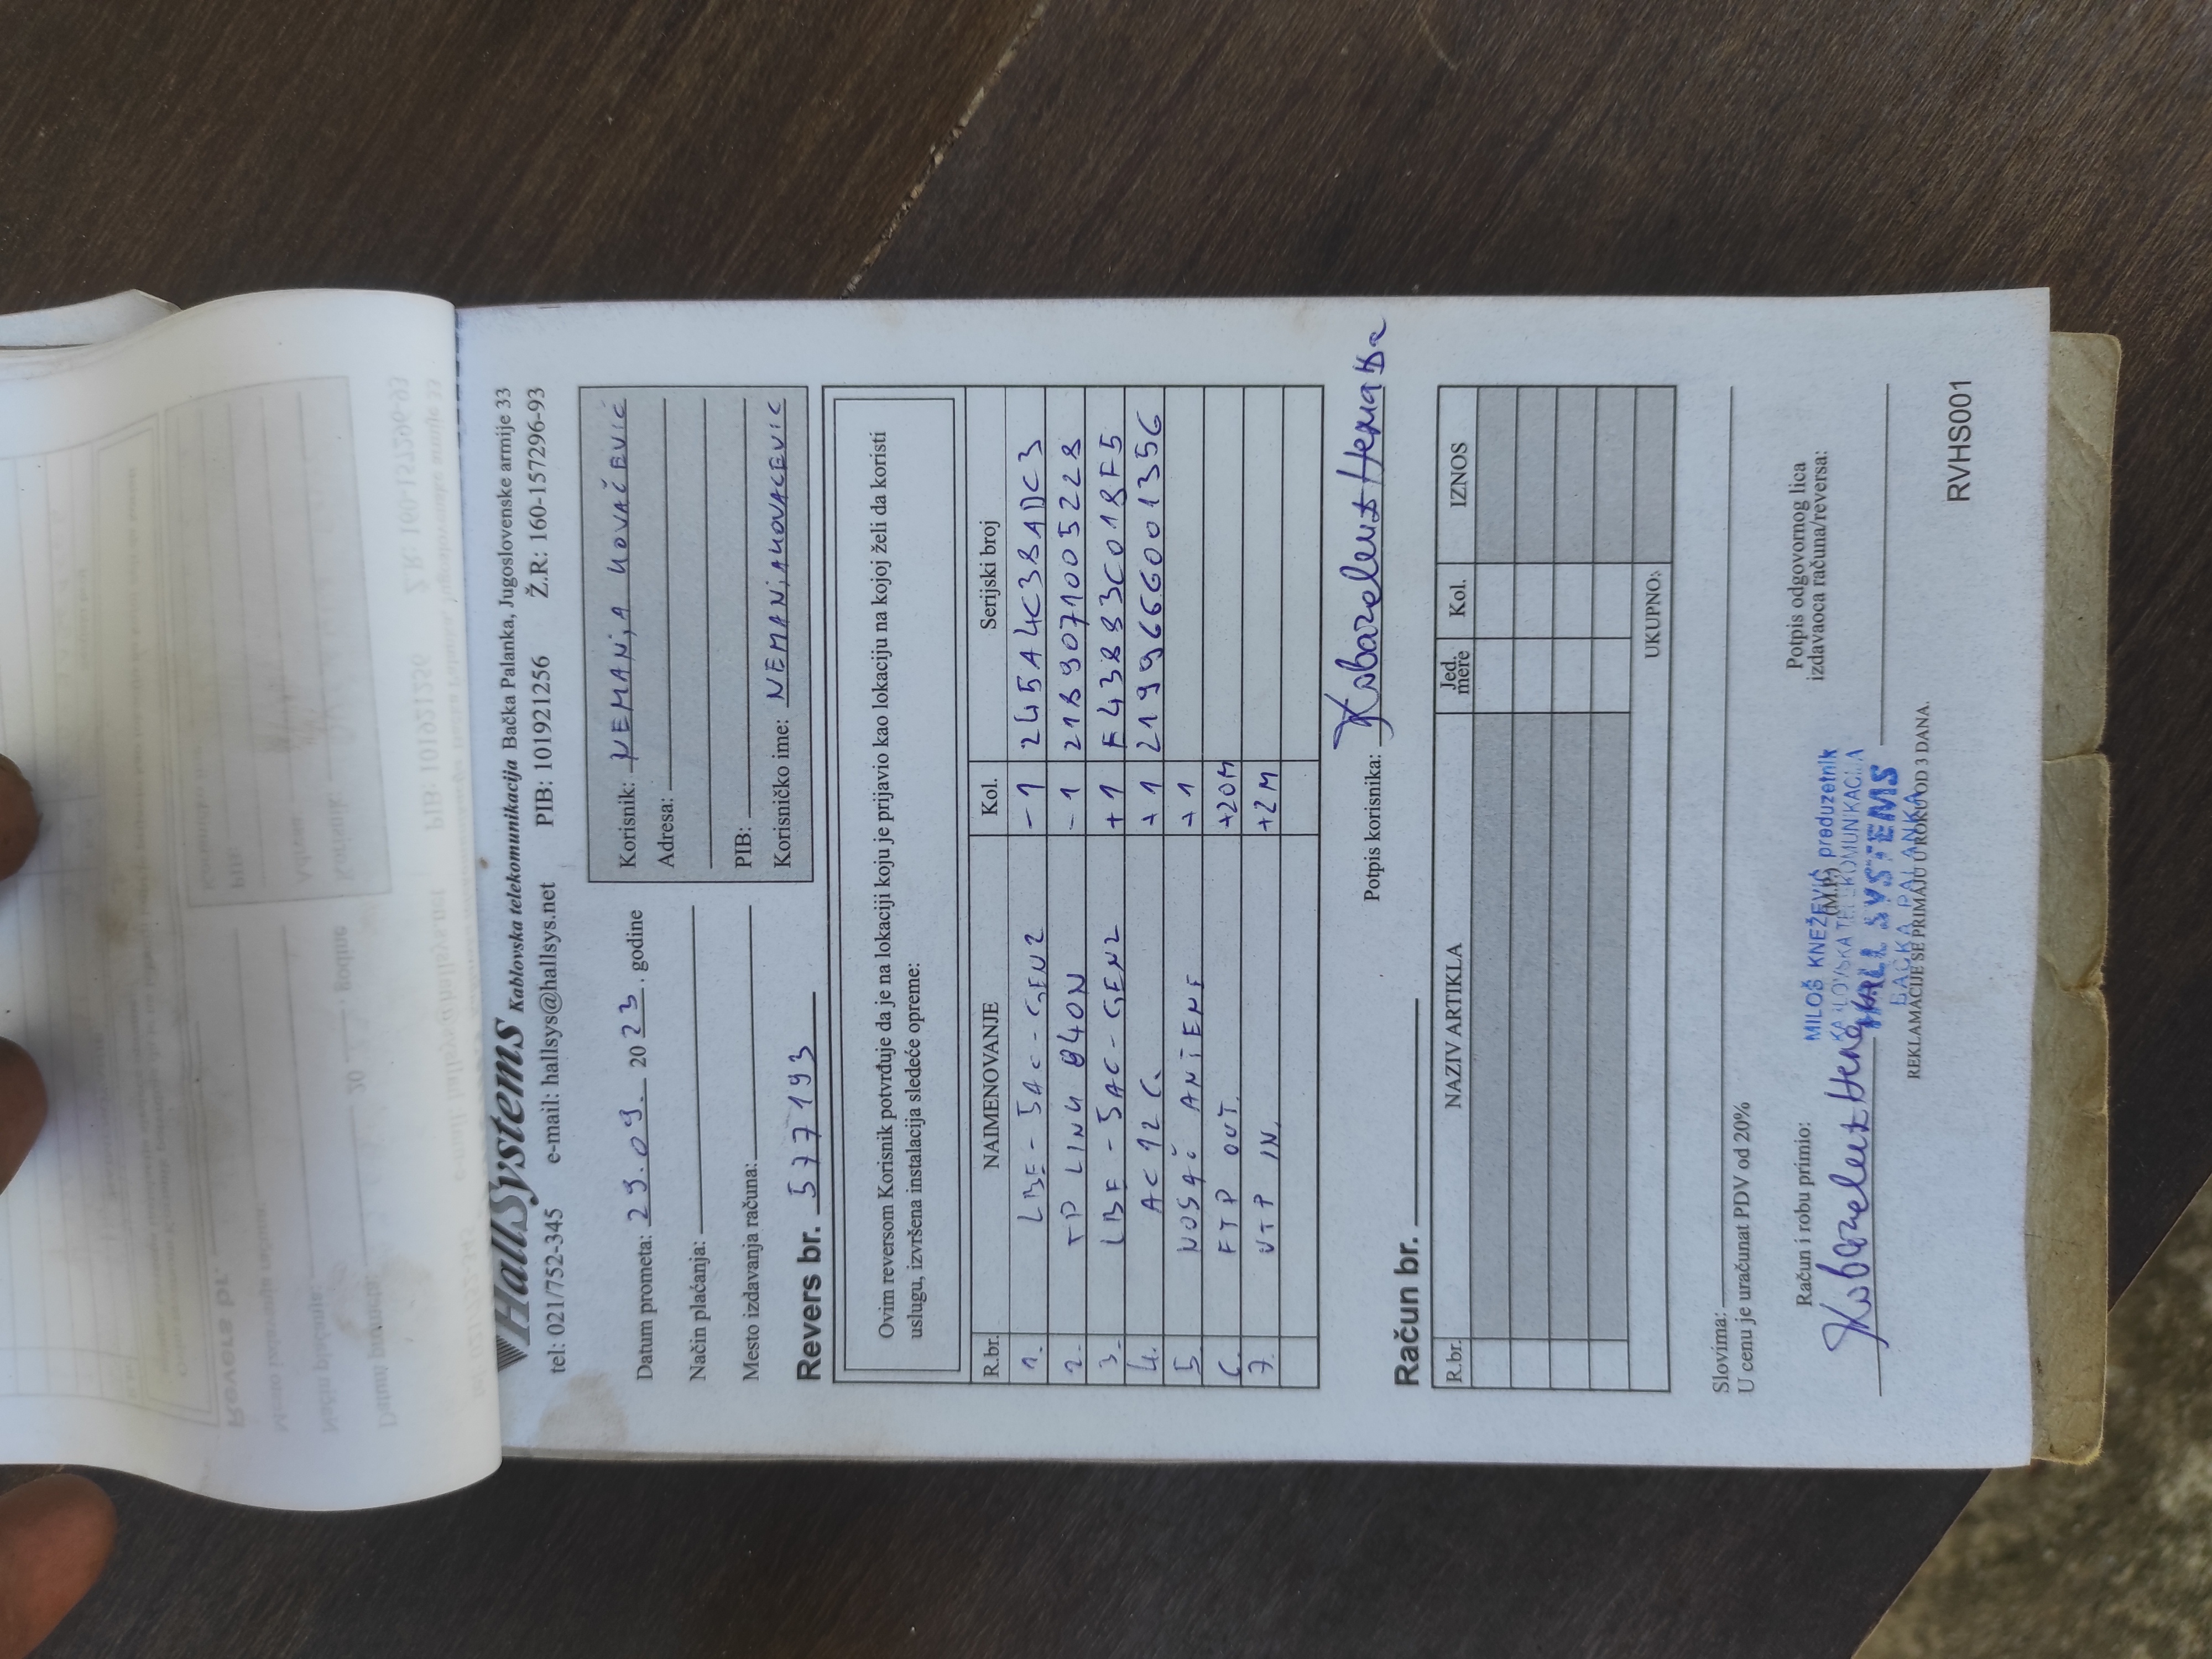 HallSystems Kablovska telekomunikacija Bačka Palanka, Jugoslovenske armije 33
tel: 021/752-345 e-mail: hallsys@hallsys.net PIB: 101921256 Ž.R.: 160-157296-93
Datum prometa: 29.09. 2023. godine
Način plaćanja:
Mesto izdavanja računa:
Korisnik: NEMANJA KOVAČEVIĆ
Adresa:
PIB:
Korisničko ime: NEMANJAKOVACEVIC
Revers br. 577193
Ovim reversom Korisnik potvrđuje da je na lokaciji koju je prijavio kao lokaciju na kojoj želi da koristi
uslugu, izvršena instalacija sledeće opreme:
R.br. NAIMENOVANJE Kol. Serijski broj
1. LBE-5AC-GEN2 -1 245A4C38ADC3
2. TP LINK 840N -1 2189071005228
3. LBE-5AC-GEN2 +1 F43883C018F5
4. AC12 C. +1 2199666001356
5. NOSAČ ANTENE +1
6. FTP OUT. +20M
7. UTP IN. +2M
Potpis korisnika:
Račun br.
R.br. NAZIV ARTIKLA Jed. mere Kol. IZNOS
UKUPNO:
Slovima:
U cenu je uračunat PDV od 20%
Račun i robu primio:
Potpis odgovornog lica
izdavaoca računa/reversa:
(M.P.)
MILOŠ KNEŽEVIĆ preduzetnik
KABLOVSKA TELEKOMUNIKACIJA
HALL SYSTEMS
BAČKA PALANKA
REKLAMACIJE SE PRIMAJU U ROKU OD 3 DANA.
RVHS001